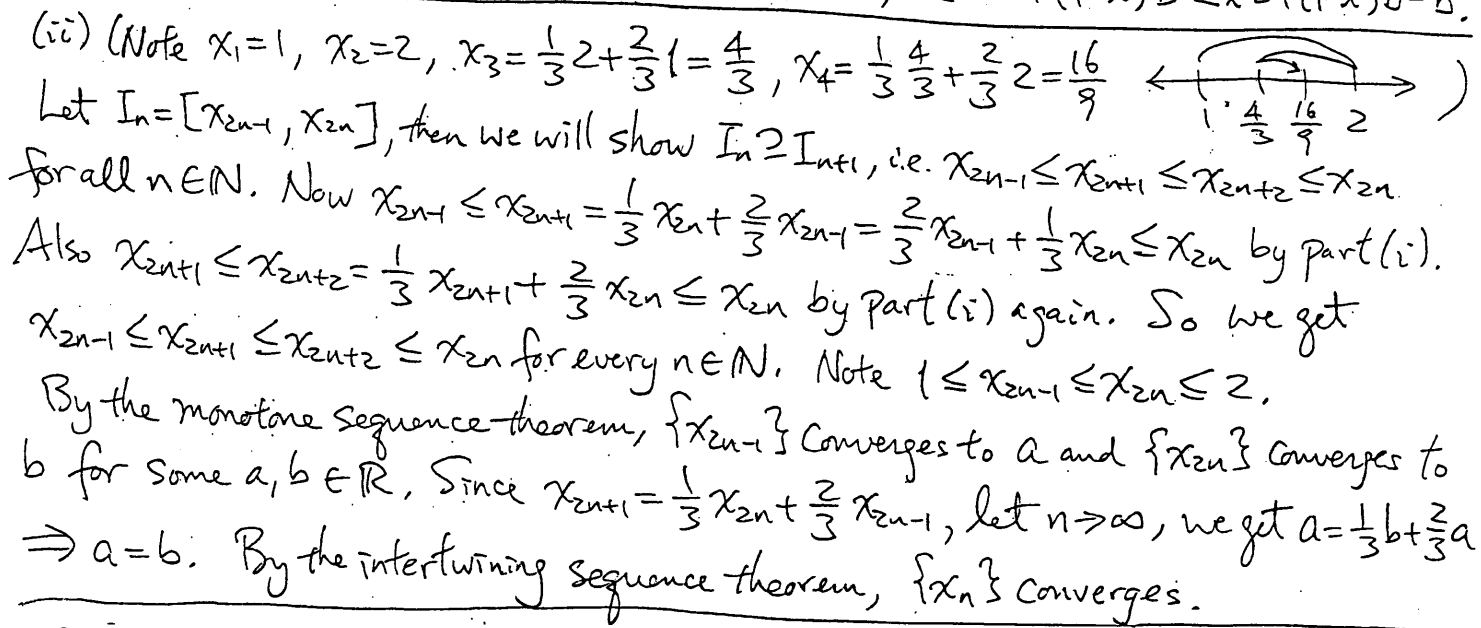 (ii) (Note x₁=1, x₂=2, x₃=1/3 2+2/3 1=4/3, x₄=1/3 4/3+2/3 2=16/9 1 4/3 16/9 2 )
Let Iₙ=[x₂ₙ₋₁, x₂ₙ], then we will show Iₙ⊇Iₙ₊₁, i.e. x₂ₙ₋₁≤x₂ₙ₊₁≤x₂ₙ₊₂≤x₂ₙ
for all n∈ℕ. Now x₂ₙ₋₁≤x₂ₙ₊₁=1/3 x₂ₙ+2/3 x₂ₙ₋₁=2/3 x₂ₙ₋₁+1/3 x₂ₙ≤x₂ₙ by part (i).
Also x₂ₙ₊₁≤x₂ₙ₊₂=1/3 x₂ₙ₊₁+2/3 x₂ₙ≤x₂ₙ by part (i) again. So we get
x₂ₙ₋₁≤x₂ₙ₊₁≤x₂ₙ₊₂≤x₂ₙ for every n∈ℕ. Note 1≤x₂ₙ₋₁≤x₂ₙ≤2.
By the monotone sequence theorem, {x₂ₙ₋₁} converges to a and {x₂ₙ} converges to
b for some a, b∈ℝ. Since x₂ₙ₊₁=1/3 x₂ₙ+2/3 x₂ₙ₋₁, let n→∞, we get a=1/3 b+2/3 a
⇒ a=b. By the intertwining sequence theorem, {xₙ} converges.